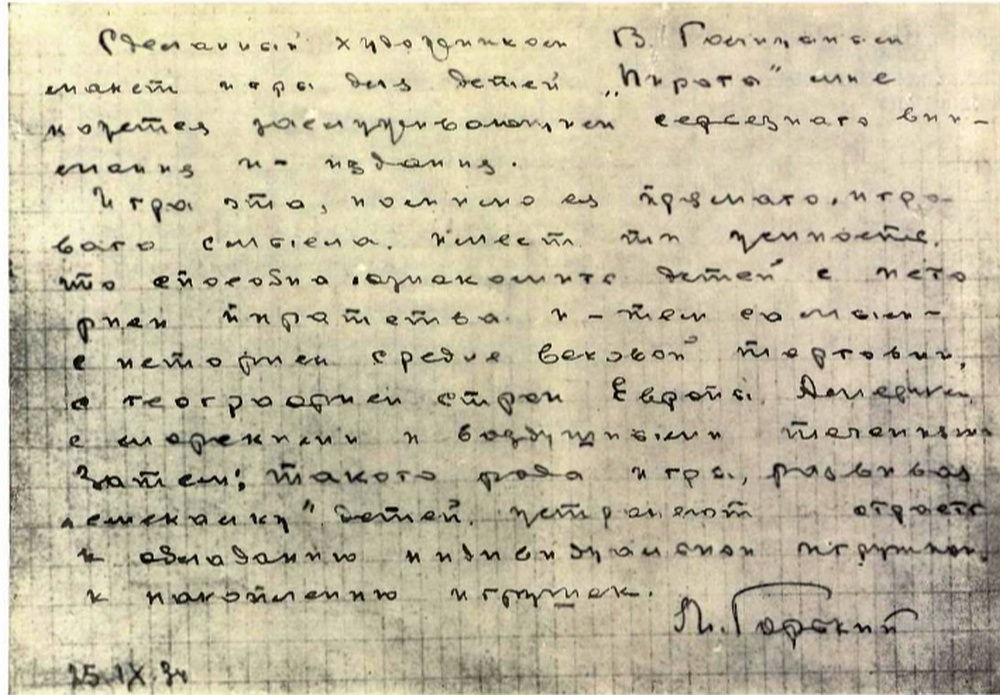 Сделанный художником В. Голицыным
макет игры для детей „Пираты" мне
кажется заслуживающим серьезнаго вни-
мания и – издания.
Игра эта, помимо ея прямаго, игро-
ваго смысла, имеет ту ценность,
что способна ознакомить детей с исто
рией пиратства и – тем самым –
с историей средне вековой торговли,
с географией стран Европы, Америки,
с морскими и воздушными течениями.
Затем: такого рода игры, развивая
„смекалку" детей, устраняют страсть
к обладанию индивидуальной игрушкой,
к накоплению игрушек.
М. Горький
25.IX.34